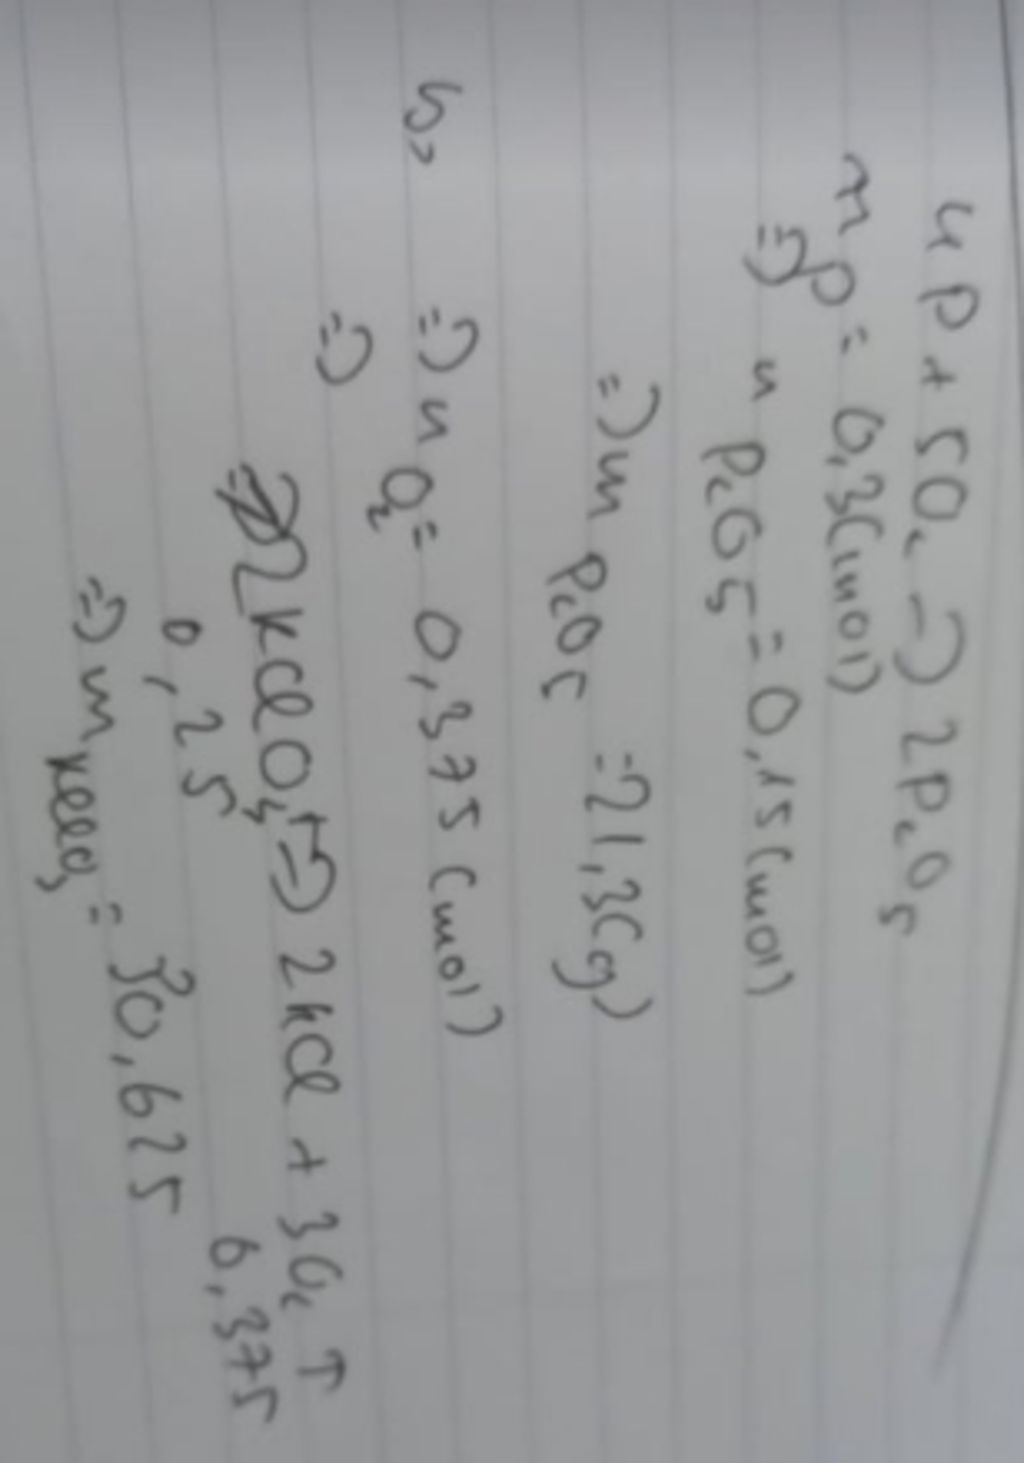 4P + 5O₂ → 2P₂O₅
nP = 0,3(mol)
=> n P₂O5 = 0,15(mol)
=> m P₂O5 = 21,3(g)
b,
=> n O₂ = 0,375 (mol)
=>
2KClO₃ → 2KCl + 3O₂ ↑
0,25 0,375
=> m KClO₃ = 30,625